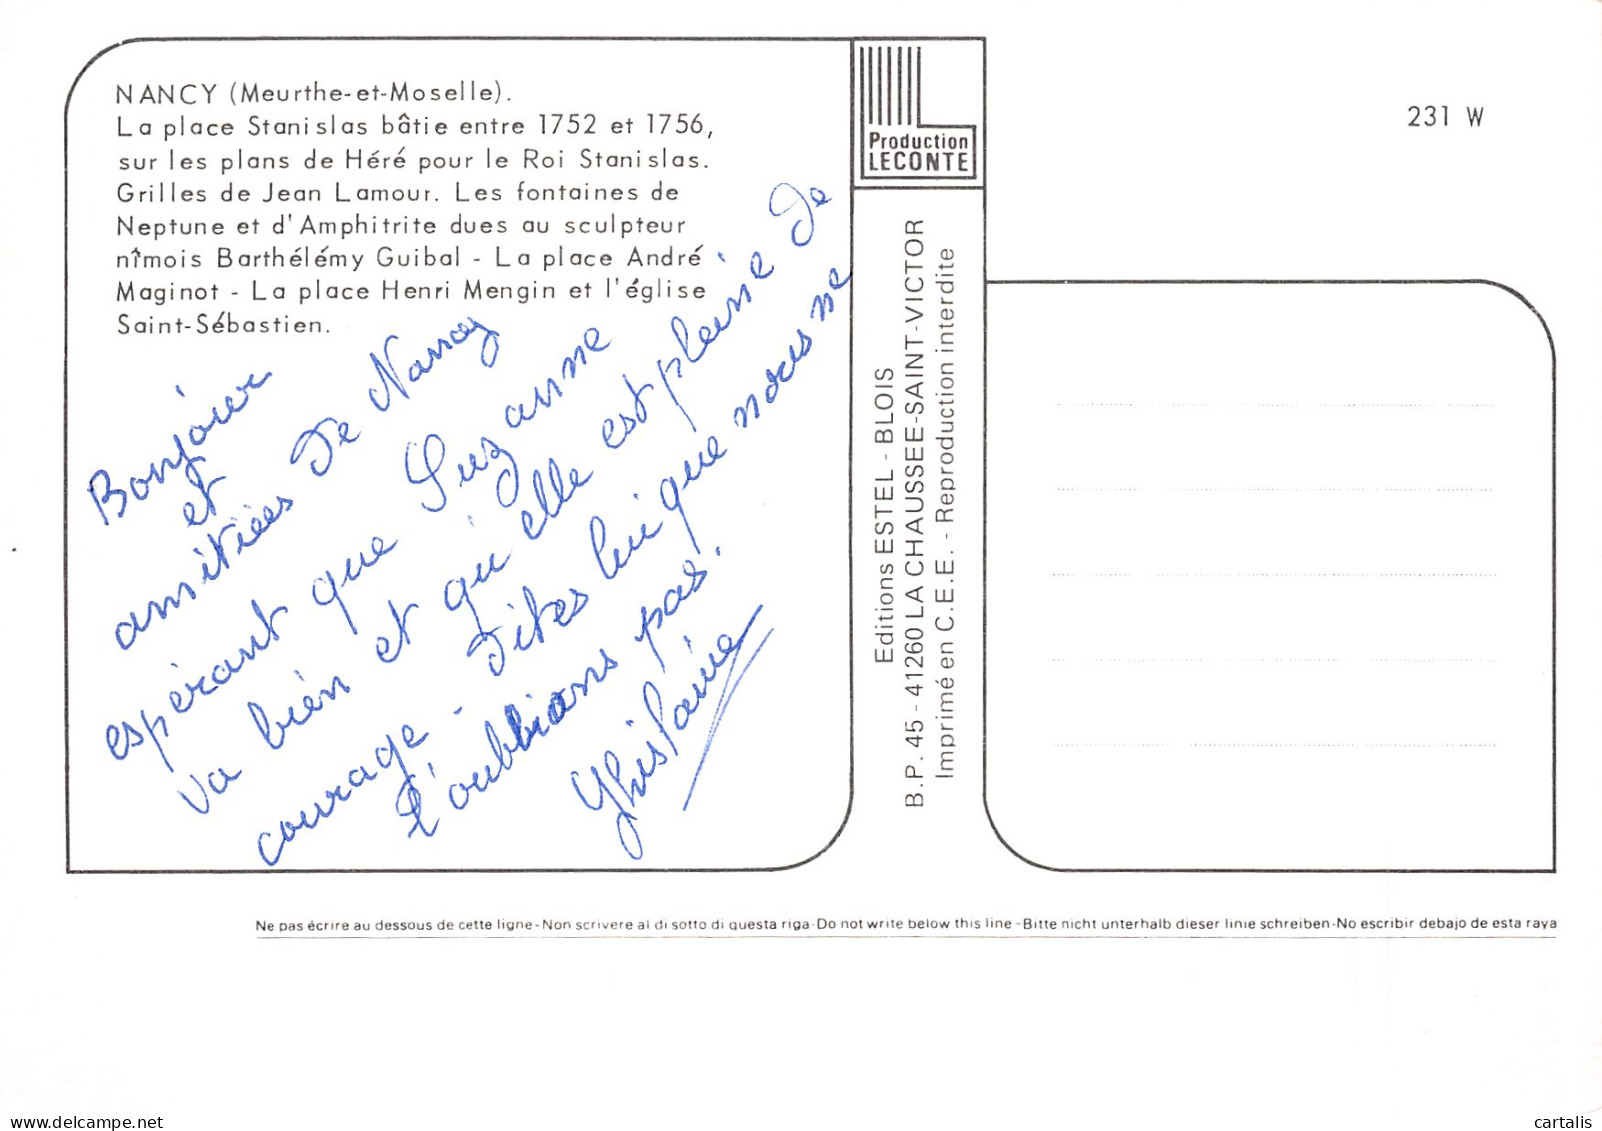 NANCY (Meurthe-et-Moselle).
La place Stanislas bâtie entre 1752 et 1756,
sur les plans de Héré pour le Roi Stanislas.
Grilles de Jean Lamour. Les fontaines de
Neptune et d'Amphitrite dues au sculpteur
nîmois Barthélémy Guibal - La place André
Maginot - La place Henri Mengin et l'église
Saint-Sébastien.
Bonjour
et
amitiées de Nancy
espérant que Suzanne
va bien et qu'elle est pleine de
courage - Dites lui que nous ne
l'oublions pas.
Ghislaine
Production
LECONTE
Editions ESTEL - BLOIS
B.P. 45 - 41260 LA CHAUSSEE-SAINT-VICTOR
Imprimé en C.E.E. - Reproduction interdite
231 W
Ne pas écrire au dessous de cette ligne-Non scrivere al di sotto di questa riga-Do not write below this line-Bitte nicht unterhalb dieser linie schreiben-No escribir debajo de esta raya
delcampe.net
cartalis